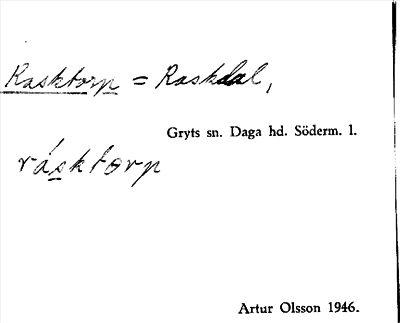 Rasktorp = Raskdal,
Gryts sn. Daga hd. Söderm. l.
rásktorp
Artur Olsson 1946.